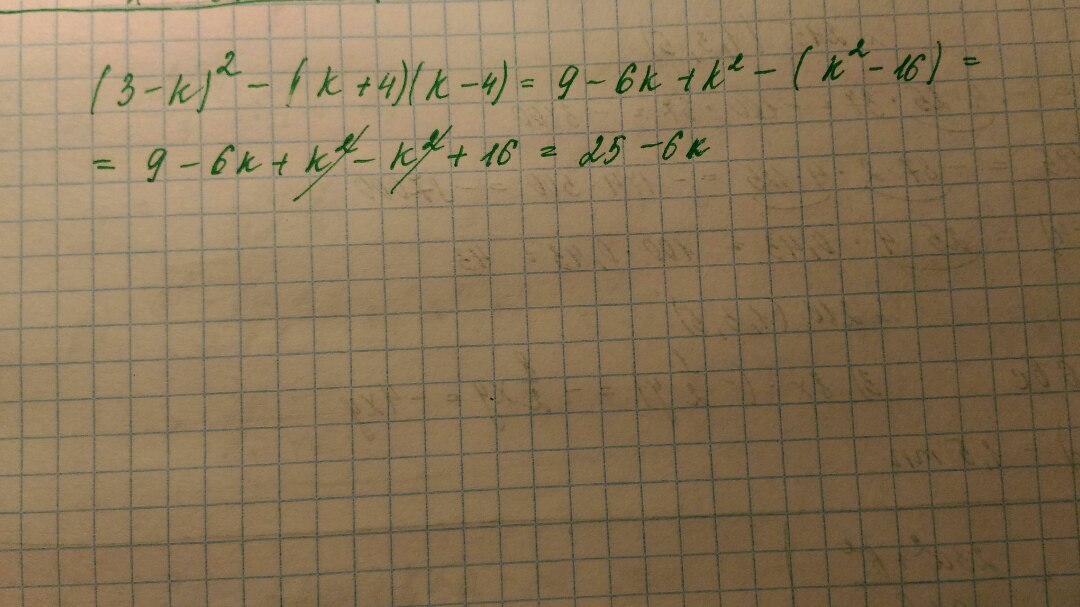 (3-k)² - (k+4)(k-4) = 9 - 6k + k² - (k² - 16) =
= 9 - 6k + k² - k² + 16 = 25 - 6k